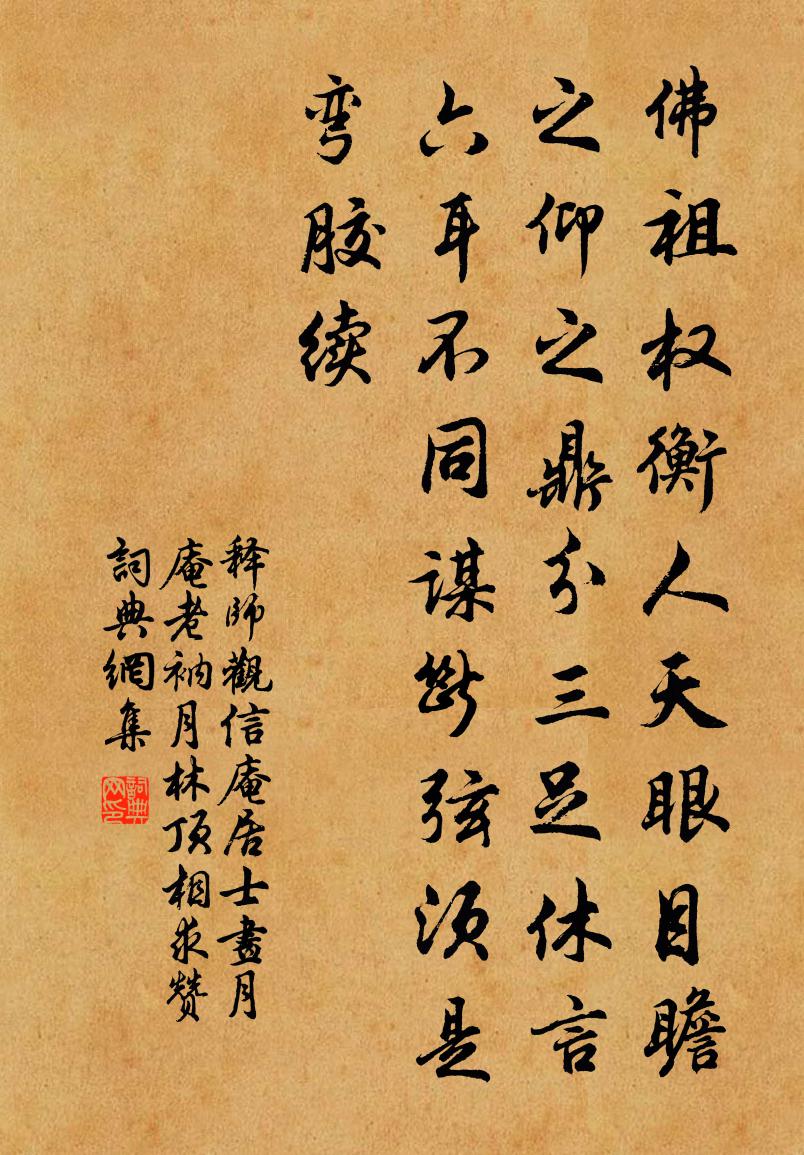 佛祖权衡人天眼目瞻
之仰之鼎分三足休言
六耳不同谋断弦须是
弯胶续
释师觀信庵居士畫月
庵老衲月林顶相求赞
詞典網集
詞典网印